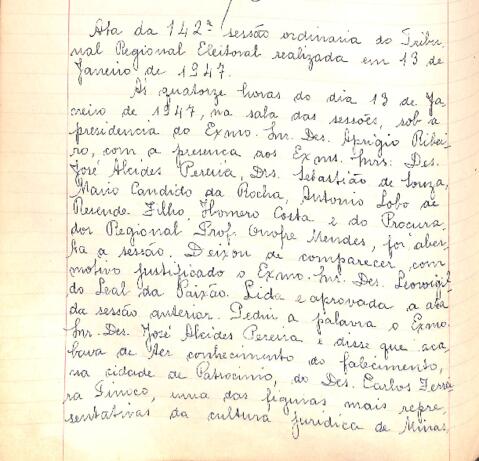 Ata da 142ª sessão ordinaria do Tribu-
nal Regional Eleitoral realizada em 13 de
Janeiro de 1947.
Ás quatorze horas do dia 13 de Ja-
neiro de 1947, na sala das sessões, sob a
presidencia do Exmo. Snr. Des. Aprigio Ribei-
ro, com a presença dos Exms. Snrs. Des.
José Alcides Pereira, Drs. Sebastião de Souza,
Mario Candido da Rocha, Antonio Lobo de
Resende Filho, Homero Costa e do Procura-
dor Regional Prof. Onofre Mendes, foi aber-
ta a sessão. Deixou de comparecer com
motivo justificado o Exmo. Snr. Des. Leovigil-
do Leal da Paixão. Lida e aprovada a ata
da sessão anterior. Pediu a palavra o Exmo.
Snr. Des. José Alcides Pereira e disse que aca-
bava de ter conhecimento do falecimento,
na cidade de Patrocinio, do Des. Carlos Ferrei-
ra Tinoco, uma das figuras mais repre-
sentativas da cultura juridica de Minas